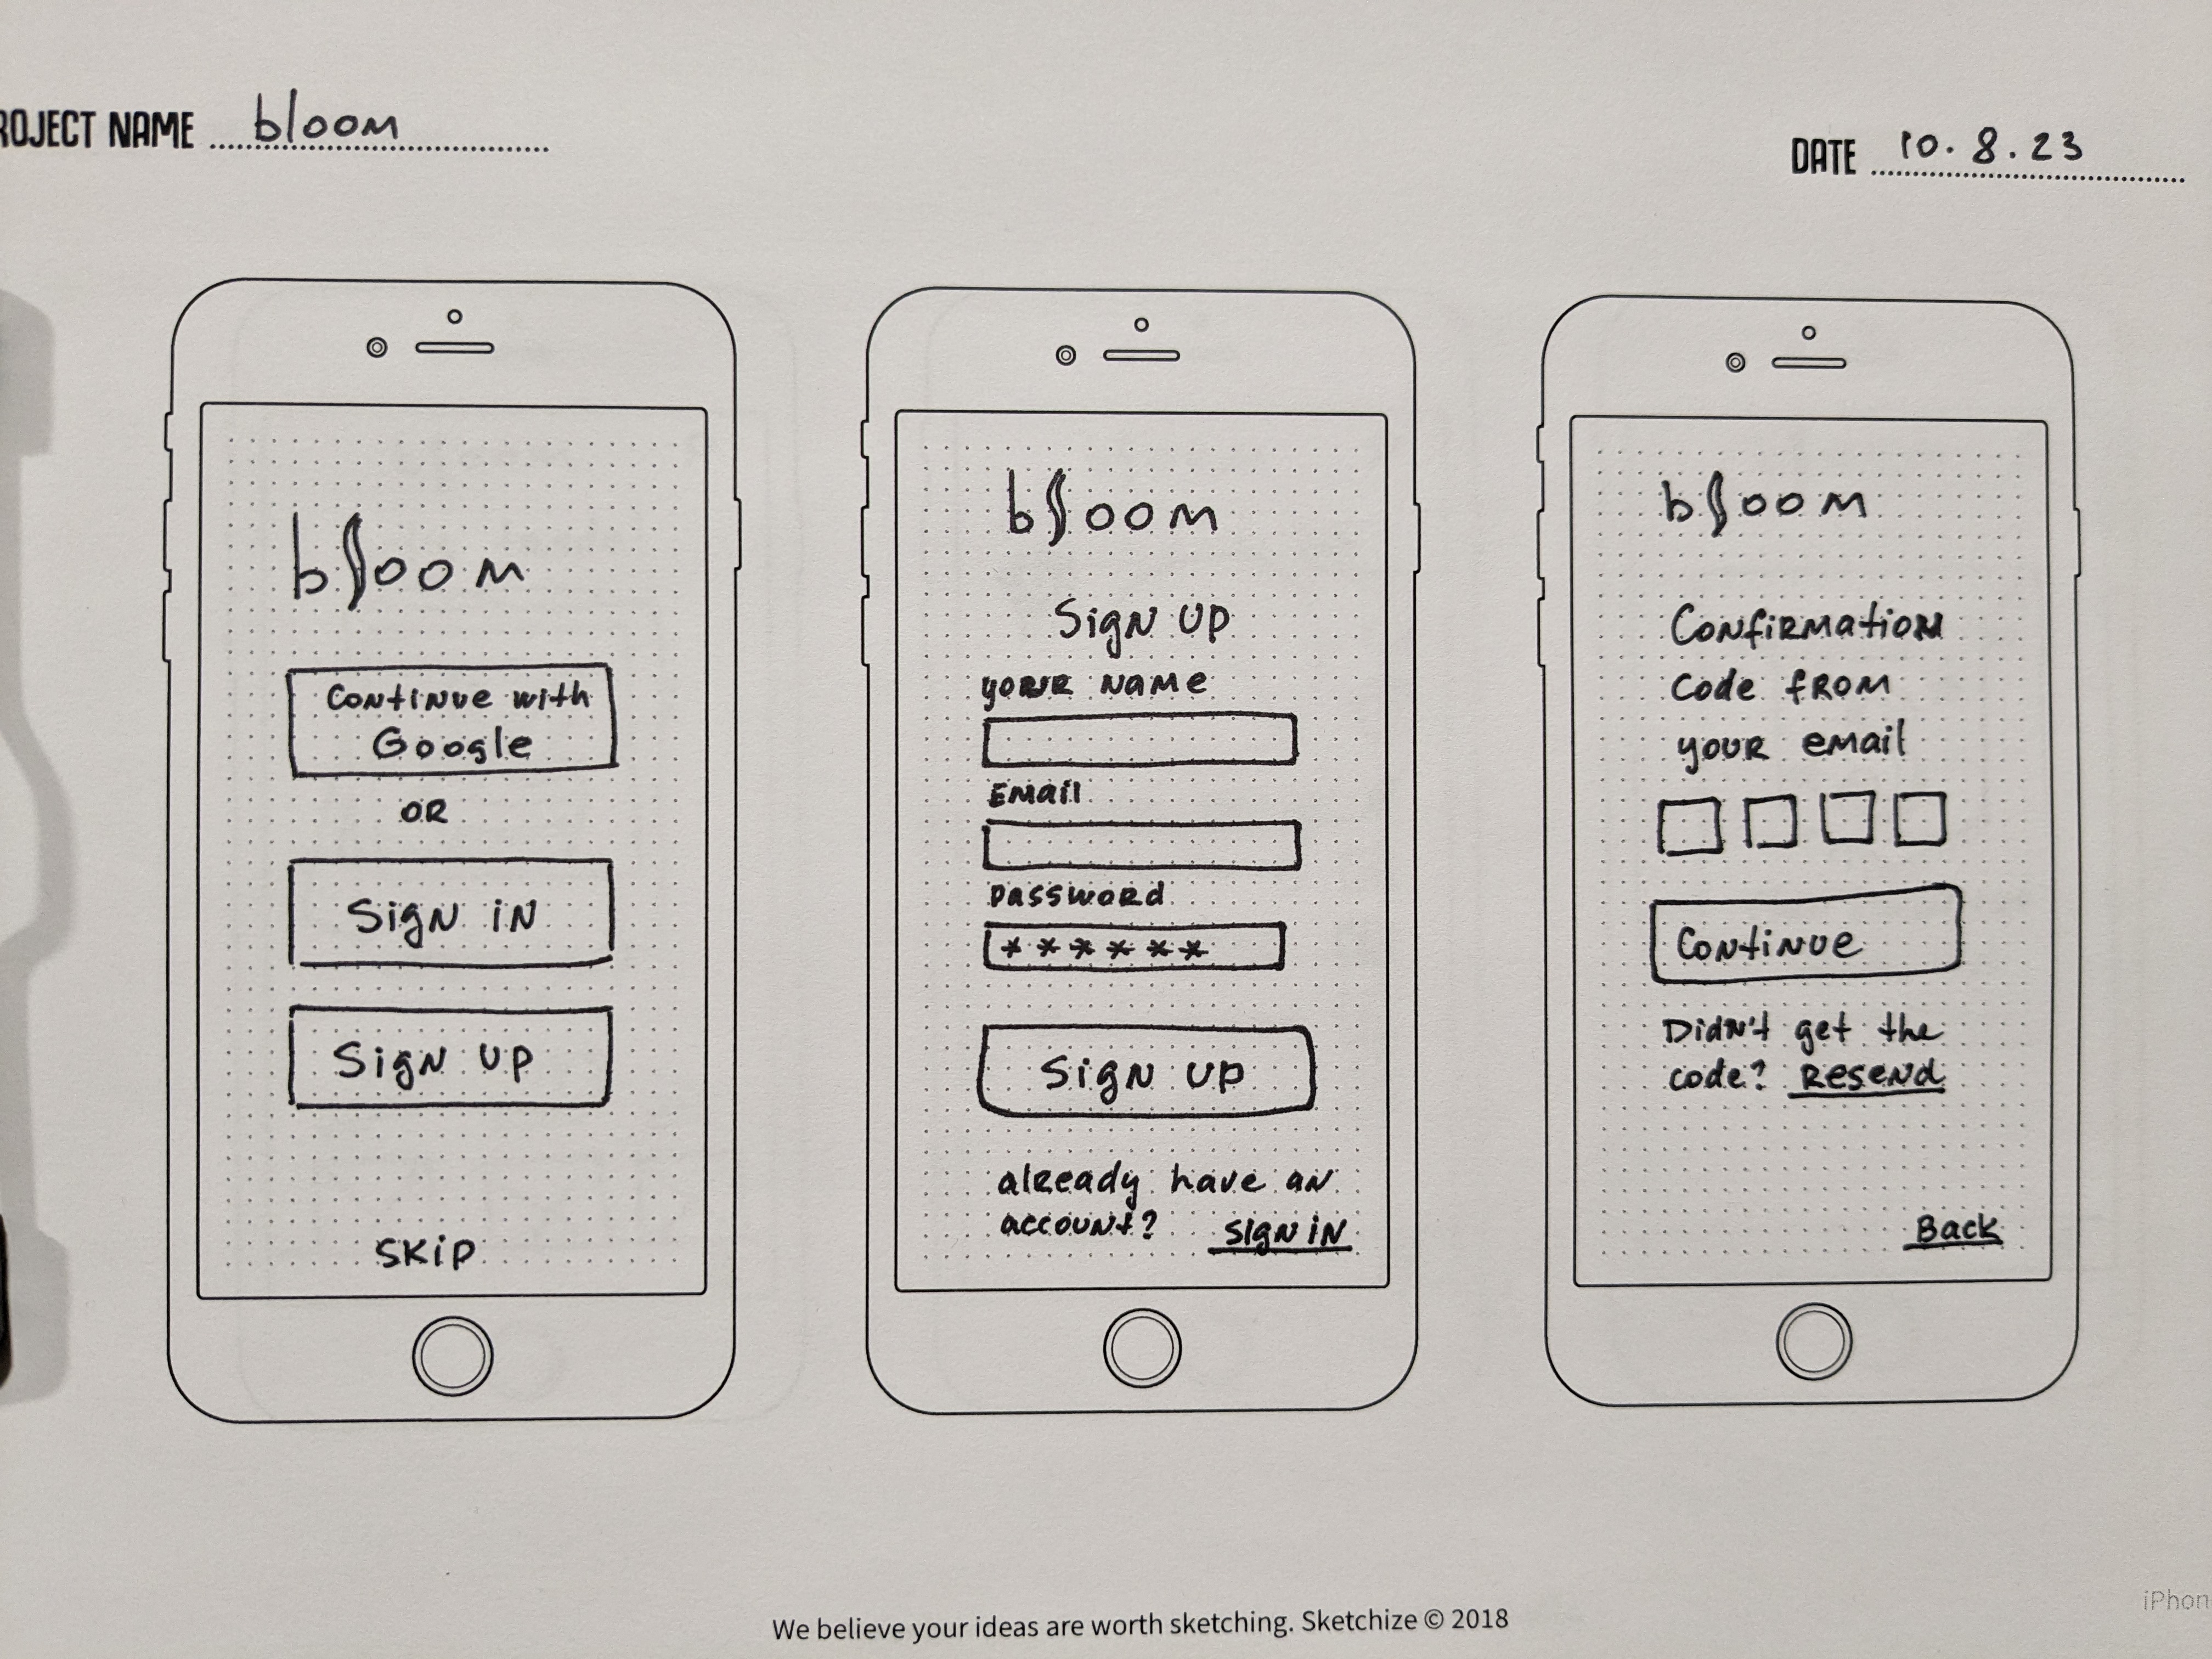 ROJECT NAME bloom
DATE 10.8.23
bloom
Continue with
Google
OR
Sign in
Sign up
Skip
bloom
Sign up
your name
Email
password
******
Sign up
already have an
account? sign in
bloom
Confirmation
Code from
your email
Continue
Didn't get the
code? Resend
Back
We believe your ideas are worth sketching. Sketchize © 2018
iPhon